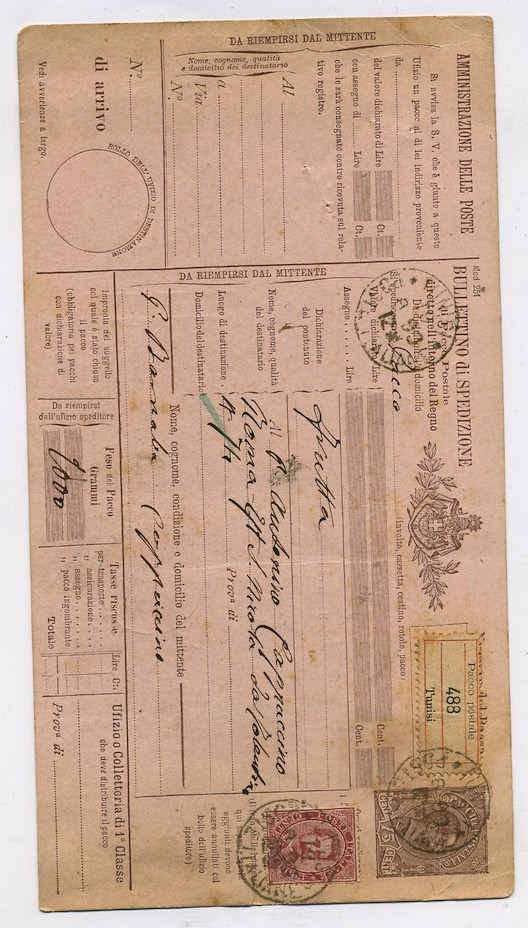 AMMINISTRAZIONE DELLE POSTE
Si avvisa la S. V. che è giunto a questo
Ufizio un pacco al di lei indirizzo proveniente
da
del valore dichiarato di Lire Ct.
con assegno di Lire Ct.
che le sarà consegnato contro ricevuta sul rela-
tivo registro.
DA RIEMPIRSI DAL MITTENTE
Nome, cognome, qualità
e domicilio del destinatario
Al
a
Via
N.º
N.º
di arrivo
BOLLO DELL'UFIZIO DI DESTINAZIONE
Ved: avvertenze a tergo.
Mod 251
BULLETTINO di SPEDIZIONE
di Pacco Postale
diretto nell'interno del Regno
Da distribuirsi a domicilio
Si spedisce pacco
(involto, cassetta, cestino, rotolo, pacco)
Pacco postale
488
Tunisi
Valore dichiarato Lire Cent.
Assegno Lire Cent.
DA RIEMPIRSI DAL MITTENTE
Dichiarazione
del contenuto
frutta
Nome, cognome, qualità
del destinatario
Al P. Cappuccino
Luogo di destinazione
Roma
Domicilio del destinatario
Prova di
Nome, cognome, condizione e domicilio del mittente
Cappuccino
Impronta del suggello
col quale è stato chiuso
il pacco
(obbligatorio pei pacchi
con dichiarazione di
valore)
Da riempirsi
dall'ufizio speditore
Peso del Pacco
Grammi
Tasse riscosse
Lire Ct.
per trasporto
„ assicurazione
„ assegno
„ pacco ingombrante
Totale
Ufizio o Collettoria di 1ª Classe
che deve distribuire il pacco
Prova di
aggiunti devono
essere annullati col
bollo dell'ufizio
speditore)
PACCHI POSTALI
75 CENT.